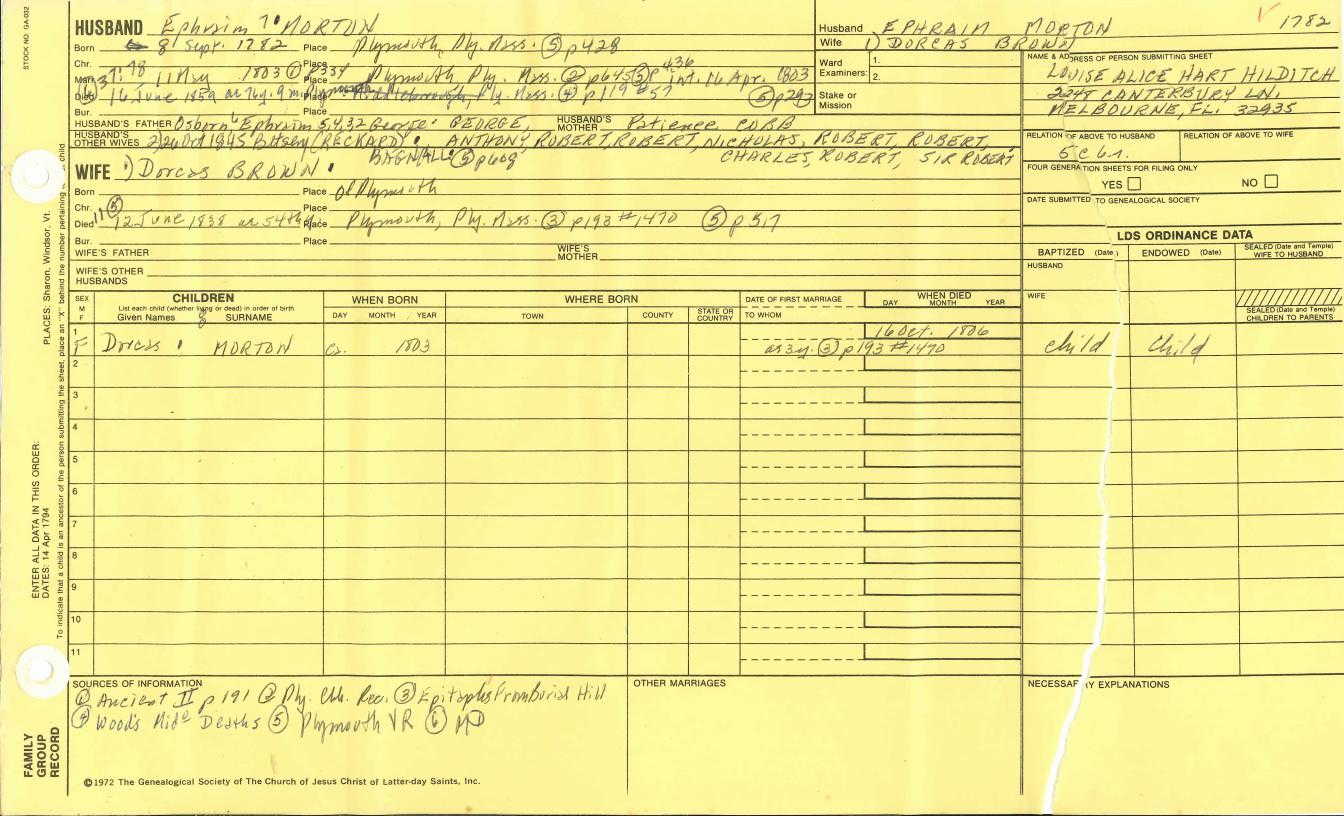 STOCK NO. GA-032
HUSBAND Ephraim 7 MORTON
Born 8 Sept. 1782 Place Plymouth, Ply. Mass. ⑤ p428
Chr. Place
Marr. 11 May 1803 Place Plymouth Ply. Mass. ② p645 ⑤ p 436 int. 16 Apr. 1803
Died 16 June 1859 Place Ply. Mass. ④ p119 #57 ⑥ p293
Bur. Place
HUSBAND'S FATHER Osborn 6 Ephraim 5,4,3,2 George 1 GEORGE, HUSBAND'S MOTHER Patience COBB
HUSBAND'S OTHER WIVES 2) Betsey (RECKARD) ANTHONY, ROBERT, ROBERT, NICHOLAS, ROBERT, ROBERT,
BAGNALL ⑤ p608 CHARLES, ROBERT, SIR ROBERT
Husband EPHRAIM MORTON 1782
Wife 1) DORCAS BROWN
Ward Examiners: 1.
2.
Stake or Mission
NAME & ADDRESS OF PERSON SUBMITTING SHEET
LOUISE ALICE HART HILDITCH
2248 CANTERBURY LN.
MELBOURNE, FL. 32935
RELATION OF ABOVE TO HUSBAND RELATION OF ABOVE TO WIFE
5 C 6 r.
FOUR GENERATION SHEETS FOR FILING ONLY
YES NO
DATE SUBMITTED TO GENEALOGICAL SOCIETY
WIFE 1) Dorcas BROWN
Born Place of Plymouth
Chr. ⑤ Place
Died 12 June 1838 ae 54th Place Plymouth, Ply. Mass. ③ p193 #1470 ⑤ p517
Bur. Place
WIFE'S FATHER WIFE'S MOTHER
WIFE'S OTHER HUSBANDS
LDS ORDINANCE DATA
BAPTIZED (Date) ENDOWED (Date) SEALED (Date and Temple) WIFE TO HUSBAND
HUSBAND
WIFE
SEALED (Date and Temple) CHILDREN TO PARENTS
SEX M F CHILDREN WHEN BORN WHERE BORN DATE OF FIRST MARRIAGE WHEN DIED
List each child (whether living or dead) in order of birth.
Given Names SURNAME DAY MONTH YEAR TOWN COUNTY STATE OR COUNTRY TO WHOM DAY MONTH YEAR
1 16 Oct. 1806
F Dorcas MORTON ca. 1803 ae 3y. ③ p193 #1470 child child
2
3
4
5
6
7
8
9
10
11
SOURCES OF INFORMATION OTHER MARRIAGES NECESSARY EXPLANATIONS
① Ancient II p 191 ② Ply. Chh. Rec. ③ Epitaphs From Burial Hill
④ Wood's Mid. Deaths ⑤ Plymouth VR ⑥ MD
©1972 The Genealogical Society of The Church of Jesus Christ of Latter-day Saints, Inc.
FAMILY GROUP RECORD
ENTER ALL DATA IN THIS ORDER:
DATES: 14 Apr 1794
PLACES: Sharon, Windsor, Vt.
To indicate that a child is an ancestor of the person submitting the sheet, place an "X" behind the number pertaining to child